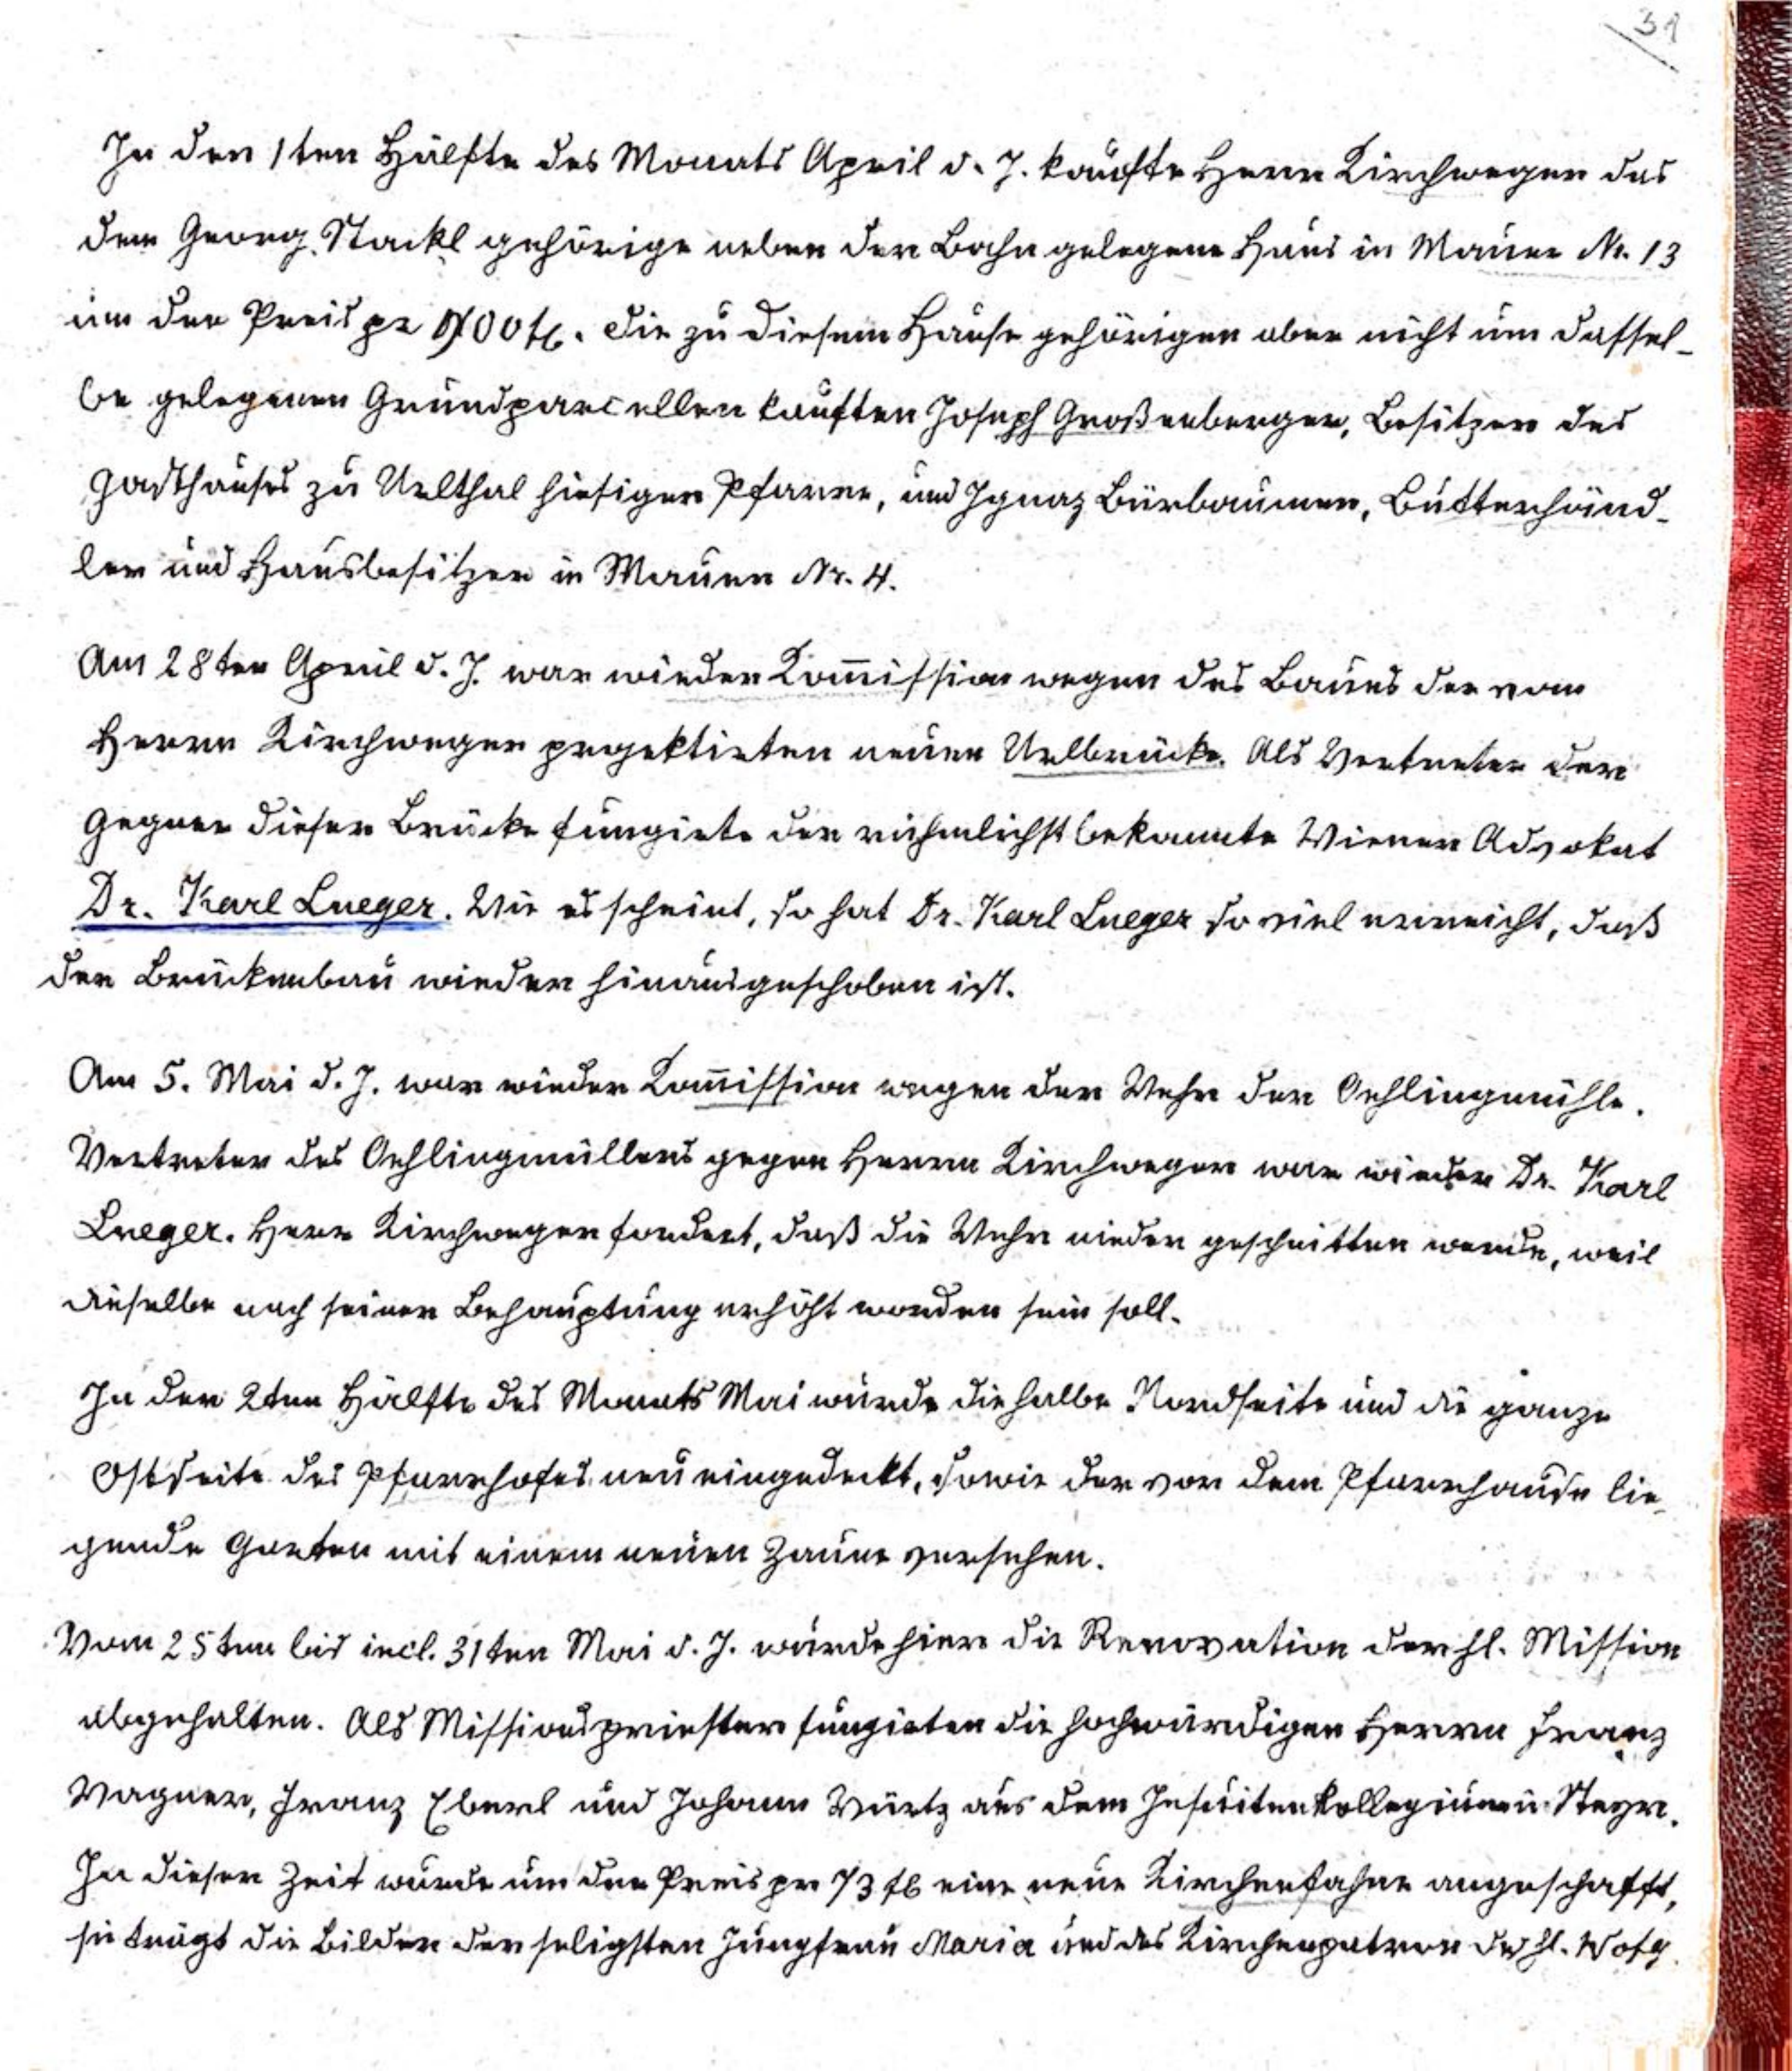 31
In der 1ten Hälfte des Monats April d. J. kaufte Herr Kirchweger das
dem Georg Stackl gehörige neben der Bahn gelegene Haus in Mauer Nr. 13
um den Preis pr 900 fl. Die zu diesem Hause gehörigen aber nicht um dassel-
be gelegenen Grundparcellen kauften Joseph Großenberger, Besitzer des
Gasthauses zu Urlthal hiesiger Pfarre, und Ignaz Bürbaumer, Butterhänd-
ler und Hausbesitzer in Mauer Nr. 4.
Am 28ten April d. J. war wieder Kom̄ission wegen des Baues der vom
Herrn Kirchweger projektirten neuen Urlbrücke. Als Vertreter der
Gegner dieser Brücke fungirte der rühmlichst bekannte Wiener Advokat
Dr. Karl Lueger. Wie es scheint, so hat Dr. Karl Lueger so viel erreicht, daß
der Brückenbau wieder hinausgeschoben ist.
Am 5. Mai d. J. war wieder Kom̄ission wegen der Wehr der Oehlingmühle.
Vertreter des Oehlingmüllers gegen Herrn Kirchweger war wieder Dr. Karl
Lueger. Herr Kirchweger fordert, daß die Wehr nieder geschnitten werde, weil
dieselbe nach seiner Behauptung erhöht worden sein soll.
In der 2ten Hälfte des Monats Mai wurde die halbe Nordseite und die ganze
Ostseite des Pfarrhofes neu eingedeckt, sowie der vor dem Pfarrhause lie-
gende Garten mit einem neuen Zaune versehen.
Vom 25ten bis incl. 31ten Mai d. J. wurde hier die Renovation der hl. Mission
abgehalten. Als Missionspriester fungirten die hochwürdigen Herren Franz
Wagner, Franz Eberl und Johann Würtz aus dem Jesuitenkollegium in Steyr.
In dieser Zeit wurde um den Preis pr 73 fl eine neue Kirchenfahne angeschafft,
sie trägt die Bilder der seligsten Jungfrau Maria und des Kirchenpatron des hl.